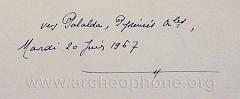 vers Palalda, Pyrénées Ales,
Mardi 20 Juin 1967
www.archeophone.org